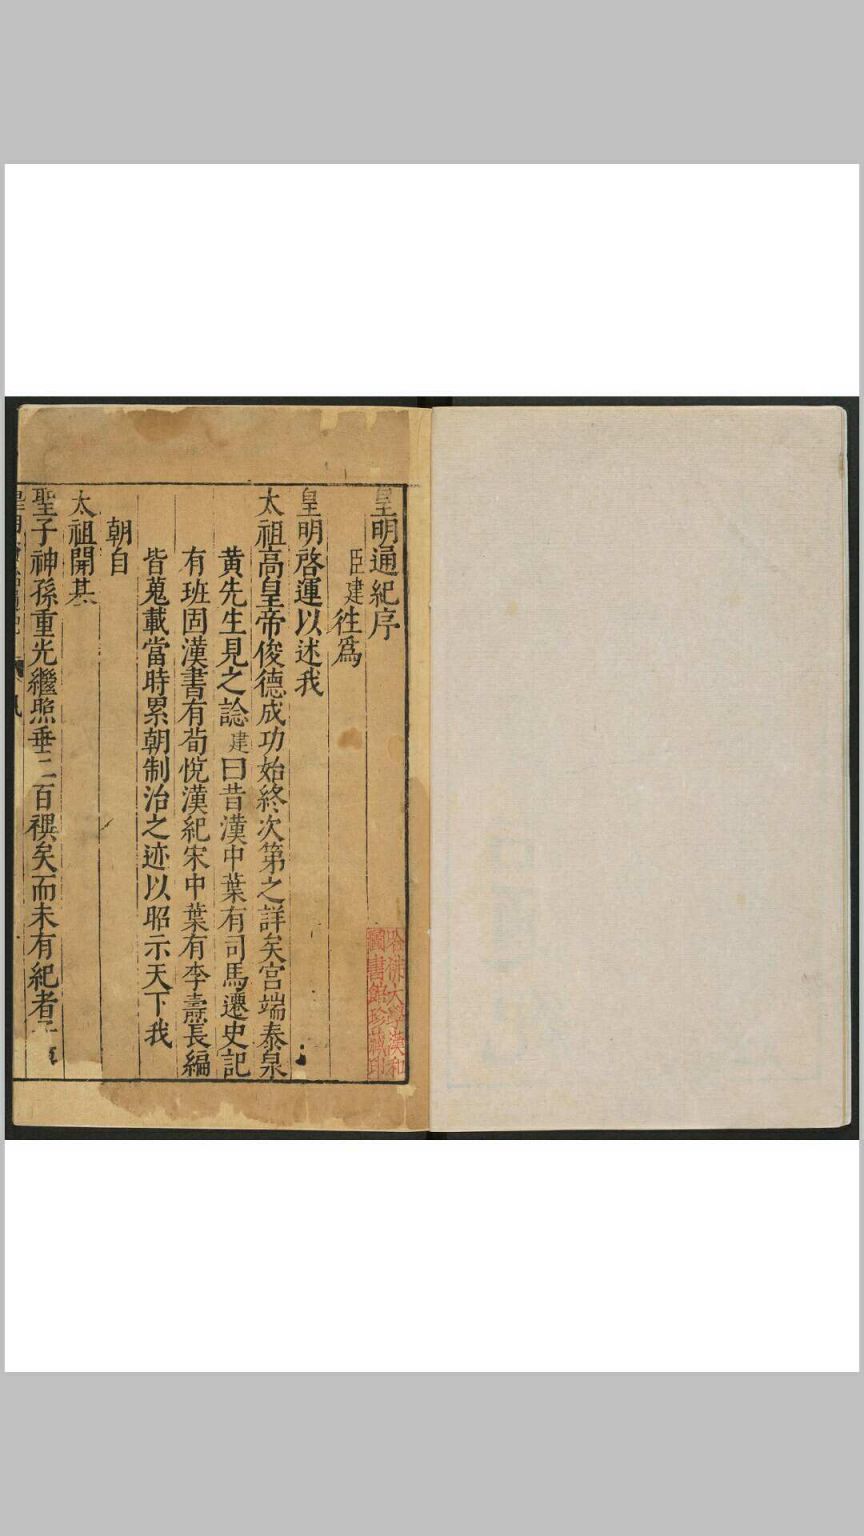 皇明通紀序
臣建徃爲
皇明啓運以述我
太祖高皇帝俊德成功始終次第之詳矣宫端泰泉
黄先生見之諗建曰昔漢中葉有司馬遷史記
有班固漢書有荀悅漢紀宋中葉有李燾長編
皆蒐載當時累朝制治之迹以昭示天下我
朝自
太祖開基
聖子神孫重光繼照垂二百禩矣而未有紀者
哈佛大學漢和
圖書館珍藏印